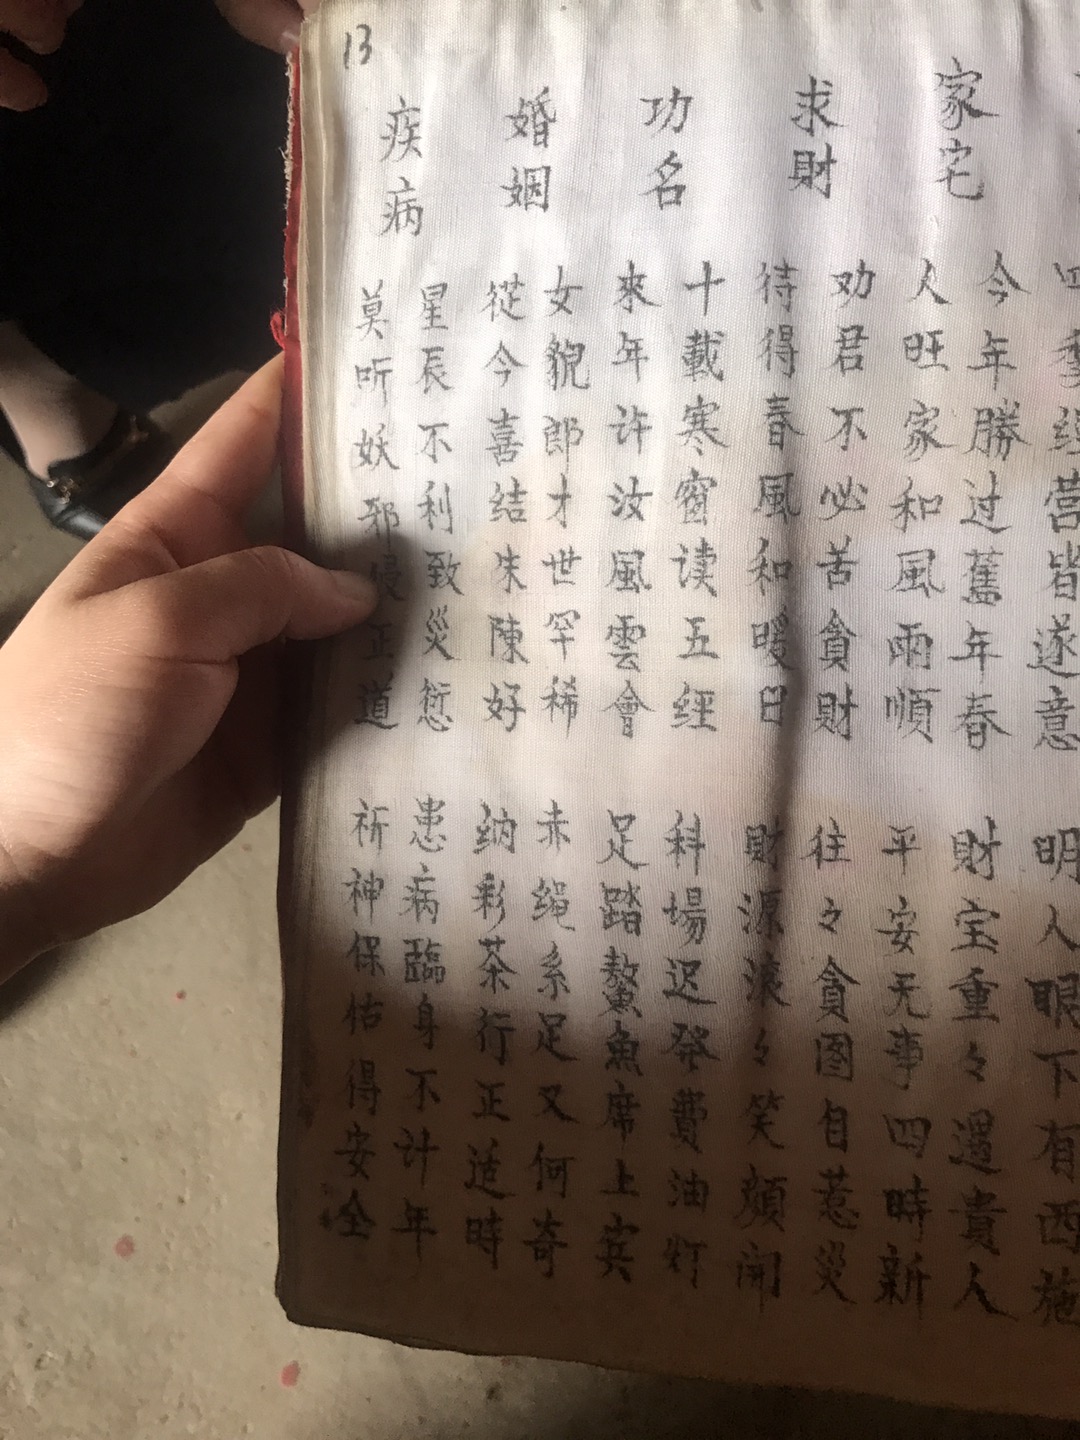 13
経营皆遂意 明人眼下有西施
家宅
今年勝过舊年春 財宝重々遇貴人
人旺家和風雨順 平安无事四時新
求財
劝君不必苦貪財 往々貪图自惹災
待得春風和暖日 財源滚々笑顏開
功名
十載寒窗读五經 科場迟発費油灯
來年许汝風雲會 足踏鰲魚席上宾
婚姻
女貌郎才世罕稀 赤绳系足又何奇
從今喜结朱陳好 纳彩茶行正适時
疾病
星辰不利致災愆 患病臨身不计年
莫听妖邪侵正道 祈神保祐得安全